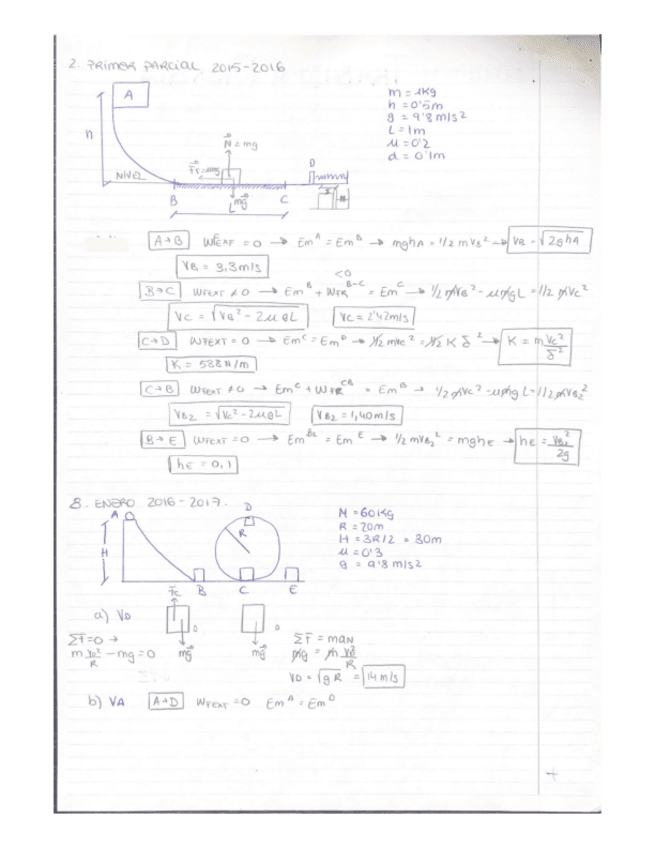 2. PRIMER PARCIAL 2015-2016
A
h
m = 1Kg
h = 0'5m
g = 9'8 m/s²
L = 1m
μ = 0'2
d = 0'1m
N = mg
D
NIVEL
Fr = μmg
B L mg C
A→B WFEXT = 0 → Em^A = Em^B → mghA = 1/2 mVB² → VB = √2ghA
VB = 3,3m/s
<0
B→C WFEXT ≠ 0 → Em^B + WFR^B-C = Em^C → 1/2 mVB² - μmgL = 1/2 mVc²
Vc = √VB² - 2μgL Vc = 2'42m/s
C→D WFEXT = 0 → Em^C = Em^D → 1/2 mVc² = 1/2 K δ² → K = m Vc²/δ²
K = 588 N/m
C→B WFEXT ≠ 0 → Em^C + WFR^CB = Em^B → 1/2 mVc² - μmg L = 1/2 mVB2²
VB2 = √Vc² - 2μgL VB2 = 1,40m/s
B→E WFEXT = 0 → Em^B2 = Em^E → 1/2 mVB2² = mghE → hE = VB2²/2g
hE = 0,1
8. ENERO 2016-2017.
A D
M = 60Kg
R = 20m
H = 3R/2 = 30m
μ = 0'3
g = 9'8 m/s²
H R
B C E
Fc
a) VD
ΣF = 0 →
m VD²/R - mg = 0
mg mg
ΣF = maN
mg = m VD²/R
VD = √gR = 14 m/s
b) VA A→D WFEXT = 0 Em^A = Em^D